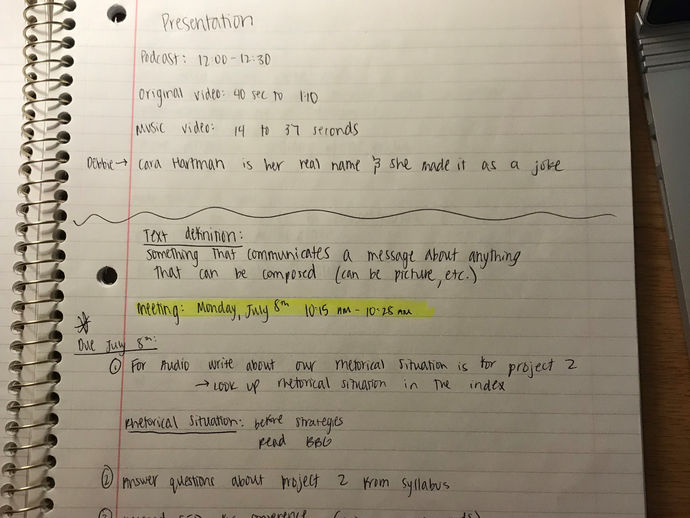 Presentation
Podcast: 12:00-12:30
Original video: 40 sec to 1:10
Music video: 14 to 37 seconds
Debbie → Cara Hartman is her real name & she made it as a joke
Text definition:
something that communicates a message about anything
that can be composed (can be picture, etc.)
meeting: Monday, July 8th 10:15 AM - 10:25 AM
Due July 8th:
① For Audio write about our rhetorical situation is for project 2
→ Look up rhetorical situation in the index
Rhetorical Situation: before strategies
read BBG
② Answer questions about project 2 from syllabus